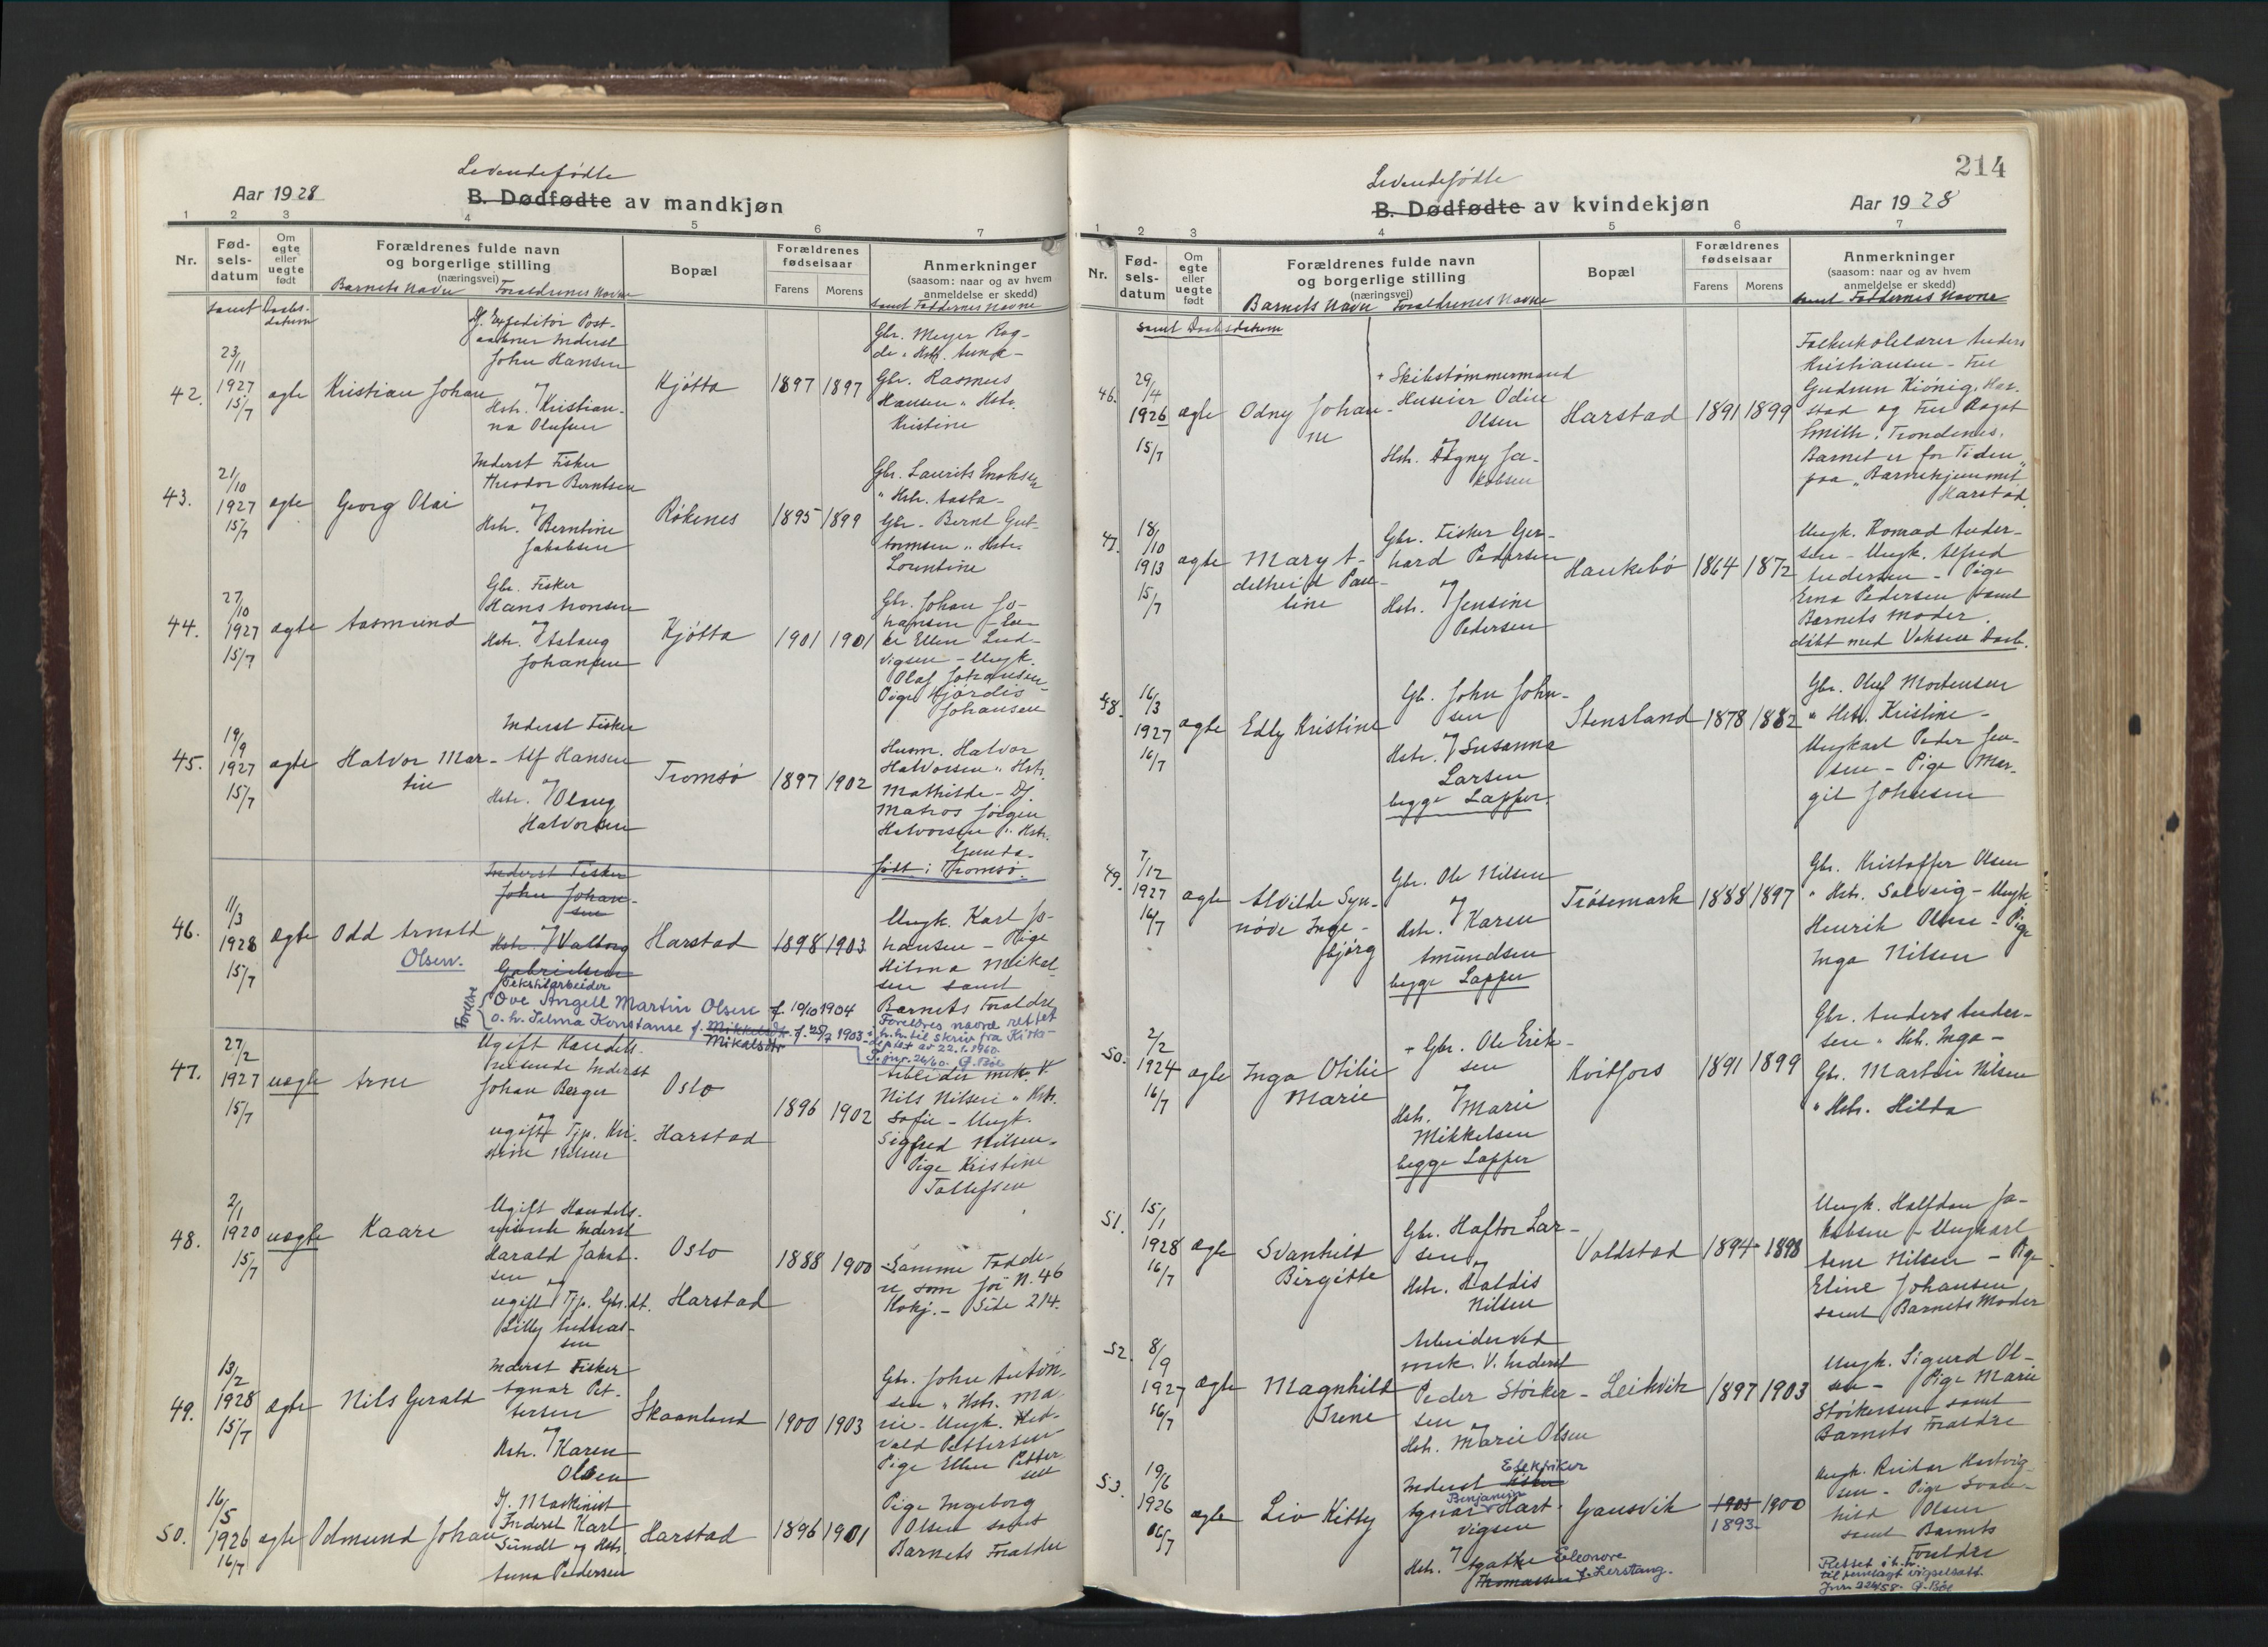 Levendefødte
Aar 1928
B. Dødfødte av mandkjøn
1 2 3 4 5 6 7
Nr.
Fød-
sels-
datum
Om
egte
eller
uegte
født
Forældrenes fulde navn
og borgerlige stilling
(næringsvei)
Barnets Navn Forældrenes Navne
Bopæl
Forældrenes
fødselsaar
Farens Morens
Anmerkninger
(saasom: naar og av hvem
anmeldelse er skedd)
samt Faddernes Navne
samt Daabs-
datum
42.
23/11
1927
15/7
ægte
Kristian Johan
Dj. Expeditør Post-
aabner Inderst
John Hansen
og
Hstr. Kristian-
na Olufsen
Kjøtta
1897 1897
Gbr. Meyer Rog-
de " Hstr. Anna -
Gbr. Rasmus
Hansen " Hstr.
Kristine
43.
21/10
1927
15/7
ægte
Georg Olai
Inderst Fisker
Theodor Berntsen
og
Hstr. Berntine
Jakobsen
Røkenes
1895 1899
Gbr. Laurits Enoksen
" Hstr. Aasta -
Gbr. Bernt Gut-
tormsen " Hstr.
Lorentine
44.
27/10
1927
15/7
ægte
Aasmund
Gbr. Fisker
Hans Aronsen
og
Hstr. Aslaug
Johansen
Kjøtta
1901 1901
Gbr. Johan Jo-
hansen -
Ellen Lud-
vigsen - Ungk.
Olaf Johansen -
Pige Hjørdis
Johansen
45.
19/9
1927
15/7
ægte
Halvor Mar-
tin
Inderst Fisker
Alf Hansen
og
Hstr. Olaug
Halvorsen
Tromsø
1897 1902
Husm. Halvor
Halvorsen " Hstr.
Mathilde - Dj.
Matros Jørgen
Halvorsen " Hstr.
Gunda -
født i Tromsø.
46.
11/3
1928
15/7
ægte
Odd Arnold
Olsen.
Inderst Fisker
John Johan-
sen
og
Hstr. Valborg
Gabrielsen
Harstad
1898 1903
Ungk. Karl Jo-
hansen - Pige
Hilma Mikal-
sen samt
Barnets Forældre
Foreldre
Tekstilarbeider
Ove Angell Martin Olsen f. 10/10 1904
o. h. Selma Konstanse f. Mikkelsdtr. f. 25/7 1903
Mikalsdtr
Foreldres navne rettet
i h.h. til skriv fra Kirke-
dep.tet av 22.1.1960.
J.nr. 26/60. G. Bøe
47.
27/2
1927
15/7
uægte
Arne
Ugift Handels-
reisende Inderst
Johan Berger
og
ugift Tjp. Kri-
stine Nilsen
Oslo
Harstad
1896 1902
Arbeider mek. V.
Nils Nilsen " Hstr.
Sofie - Ungk.
Sigfred Nilsen -
Pige Kristine
Tollefsen
48.
2/1
1920
15/7
uægte
Kaare
Ugift Handels-
reisende Inderst
Harald Jakob-
sen
og
ugift Tjp. Gbr.dt.
Lilly Andreas-
sen
Oslo
Harstad
1888 1900
Samme Fadde-
re som for N. 46
Kvkj. - Side 214.
49.
13/2
1928
15/7
ægte
Nils Gerald
Inderst Fisker
Agnar Pet-
tersen
og
Hstr. Karen
Olsen
Skaanland
1900 1903
Gbr. John Anton-
sen " Hstr. Ma-
rie - Ungk. Hed-
vald Pettersen
Pige Ellen Petter-
sen
50.
16/5
1926
16/7
ægte
Odmund Johan
Dj. Maskinist
Inderst Karl
Sundt og Hstr.
Anna Pedersen
Harstad
1896 1901
Pige Ingeborg
Olsen samt
Barnets Forældre
214
Levendefødte
B. Dødfødte av kvindekjøn
Aar 1928
1 2 3 4 5 6 7
Nr.
Fød-
sels-
datum
Om
egte
eller
uegte
født
Forældrenes fulde navn
og borgerlige stilling
(næringsvei)
Barnets Navn Forældrenes Navne
Bopæl
Forældrenes
fødselsaar
Farens Morens
Anmerkninger
(saasom: naar og av hvem
anmeldelse er skedd)
samt Faddernes Navne
samt Daabsdatum
46.
29/4
1926
15/7
ægte
Odny Johan-
ne
+ Skibstømmermand
Huseier Odin
Olsen
og
Hstr. Dagny Ja-
kobsen
Harstad
1891 1899
Folkeskolelærer Anders
Kristiansen - Fru
Gudrun Kiönig, Har-
stad og Fru Ragot
Smith, Trondenes.
Barnet er for Tiden
paa "Barnehjemmet"
Harstad
47.
18/10
1913
15/7
ægte
Mary A-
delheid Pau-
line
Gbr. Fisker Ger-
hard Pedersen
og
Hstr. Jensine
Pedersen
Haukebø
1864 1872
Ungk. Konrad Ander-
sen - Ungk. Alfred
Andersen - Pige
Erna Pedersen samt
Barnets Moder.
døbt med Voksen Daab.
48.
16/3
1927
16/7
ægte
Edly Kristine
Gb. John John-
sen
og
Hstr. Susanna
Larsen
begge Lapper.
Stensland
1878 1882
Gbr. Oluf Mortensen
" Hstr. Kristine -
Ungkarl Peder Jen-
sen - Pige Mar-
git Johnsen
49.
7/12
1927
16/7
ægte
Alvilde Syn-
nøve Inge-
bjørg
Gbr. Ole Nilsen
og
Hstr. Karen
Amundsen
begge Lapper
Trøsemark
1888 1897
Gbr. Kristoffer Olsen
" Hstr. Solveig - Ungk
Henrik Olsen - Pige
Inga Nilsen
50.
2/2
1924
16/7
ægte
Inga Otilie
Marie
+ Gbr. Ole Erik-
sen
og
Hstr. Marie
Mikkelsen
begge Lapper
Kvitfors
1891 1899
Gbr. Anders Ander-
sen " Hstr. Inga -
Gbr. Martin Nilsen
" Hstr. Hilda
51.
15/1
1928
16/7
ægte
Svanhild
Birgitte
Gbr. Haftor Lar-
sen
og
Hstr. Raldis
Nilsen
Voldstad
1894 1898
Ungk. Halfdan Ja-
kobsen - Ungkarl
Arne Nilsen - Pige
Eline Johansen
samt Barnets Moder
52.
8/9
1927
16/7
ægte
Magnhild
Irene
Arbeider ved
mek. V. Inderst
Peder Störker-
sen
og
Hstr. Marie Olsen
Leikvik
1897 1903
Ungk. Sigurd Ol-
sen - Pige Marie
Störkersen samt
Barnets Forældre
53.
19/6
1926
16/7
ægte
Liv Kitty
Elektriker
Inderst Fisker
Benjamin
Agnar Hart-
vigsen
og
Hstr. Agathe Eleonore
Thomassen f. Lerstang.
Gausvik
1903 1900
1893
Ungk. Reidar Hartvig-
sen - Pige Svan-
hild Olsen
samt Barnets
Forældre
Rettet i h.h.
til fremlagt vigselsatt.
Jnr. 224/58. G. Bøe